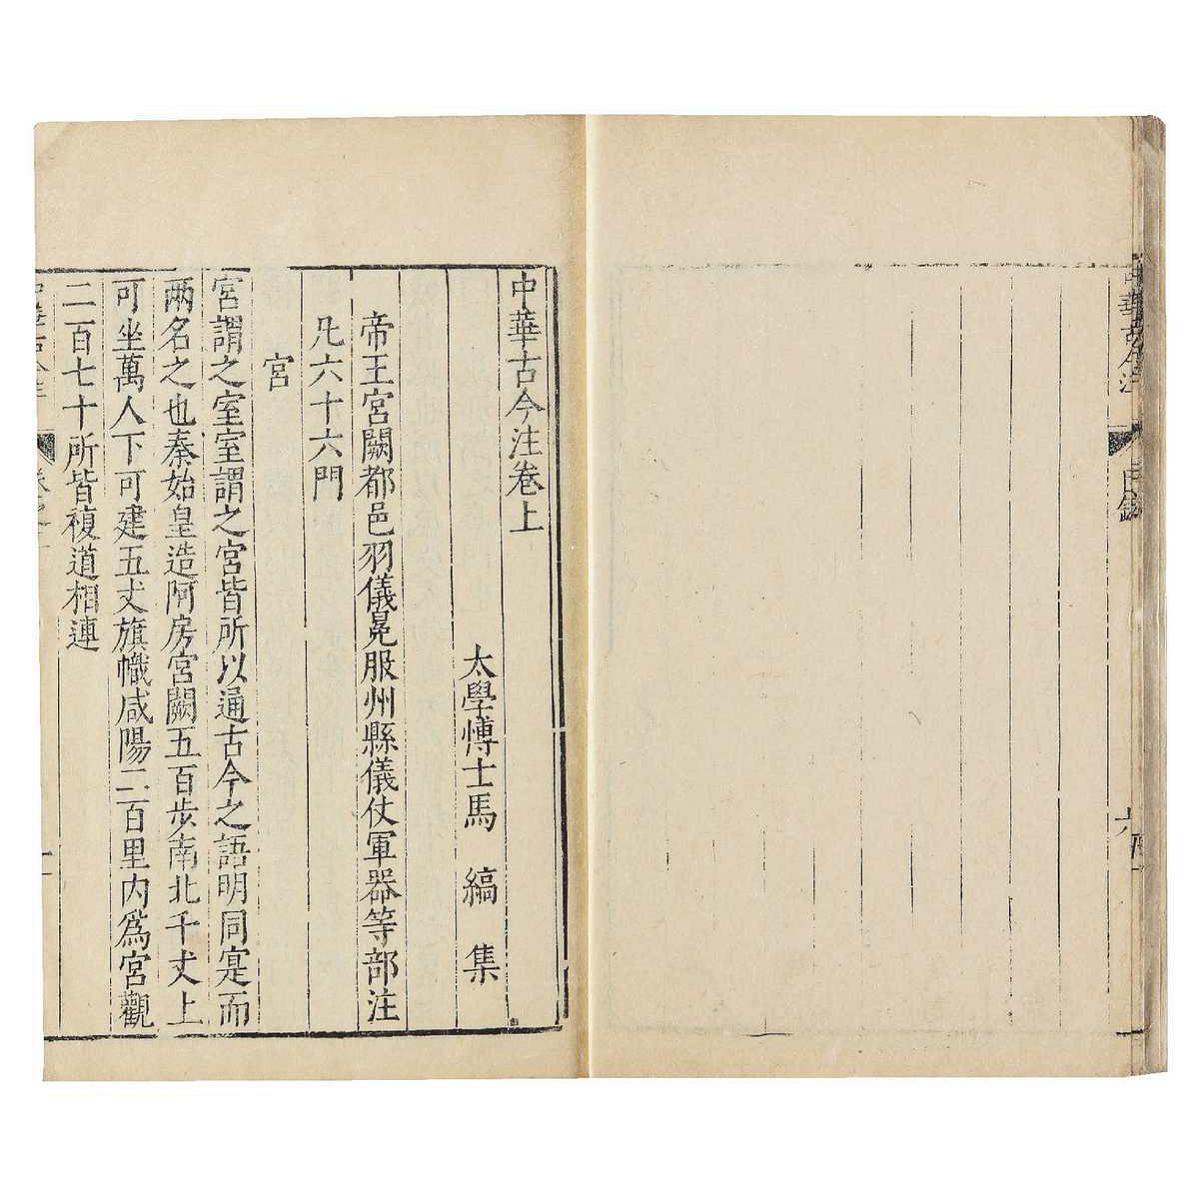 中華古今注
目錄
六
中華古今注卷上
太學博士馬縞集
帝王宮闕都邑羽儀冕服州縣儀仗軍器等部注
凡六十六門
宮
宮謂之室室謂之宮皆所以通古今之語明同寔而
兩名之也秦始皇造阿房宮闕五百步南北千丈上
可坐萬人下可建五丈旗幟咸陽二百里內爲宮觀
二百七十所皆複道相連